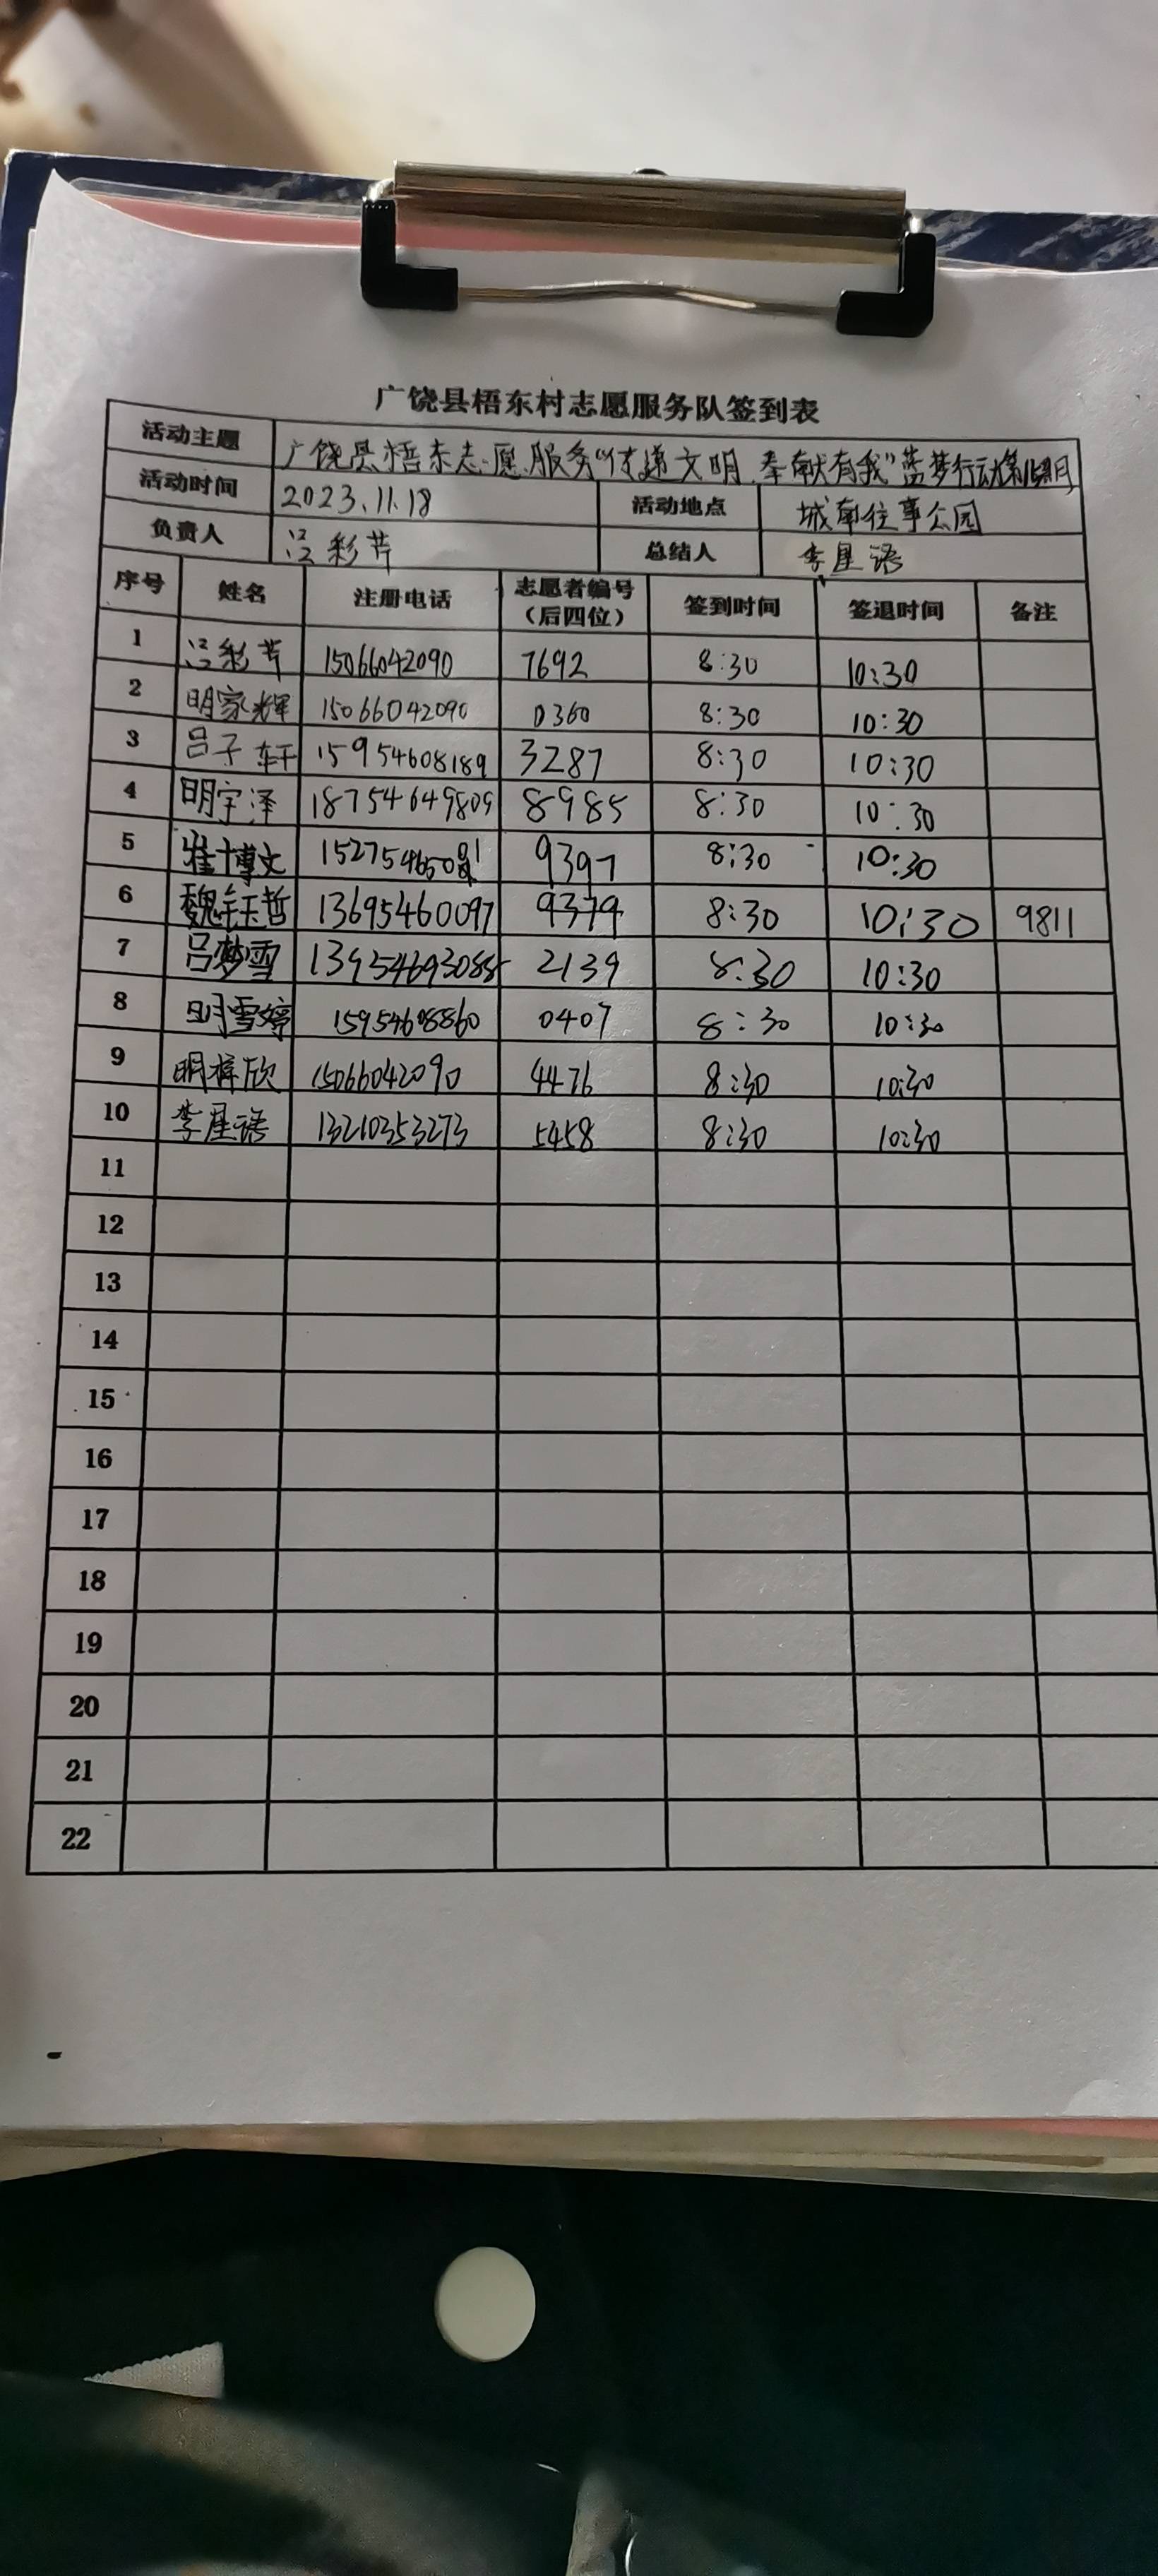 广饶县梧东村志愿服务队签到表
活动主题 广饶县梧东志愿服务“传递文明.奉献有我”蓝梦行动第 期
活动时间 2023.11.18 活动地点 城南往事公园
负责人 吕彩芹 总结人 李星语
序号 姓名 注册电话 志愿者编号（后四位） 签到时间 签退时间 备注
1 吕彩芹 15066042090 7692 8:30 10:30
2 明家辉 15066042090 0360 8:30 10:30
3 吕子轩 15954608189 3287 8:30 10:30
4 明宇泽 18754649809 8985 8:30 10:30
5 崔博文 9397 8:30 10:30
6 魏钰哲 13695460097 9379 8:30 10:30 9811
7 吕梦雪 2139 8:30 10:30
8 明雪婷 15954608860 0407 8:30 10:30
9 明梓欣 15066042090 4476 8:30 10:30
10 李星语 13210353273 5458 8:30 10:30
11
12
13
14
15
16
17
18
19
20
21
22